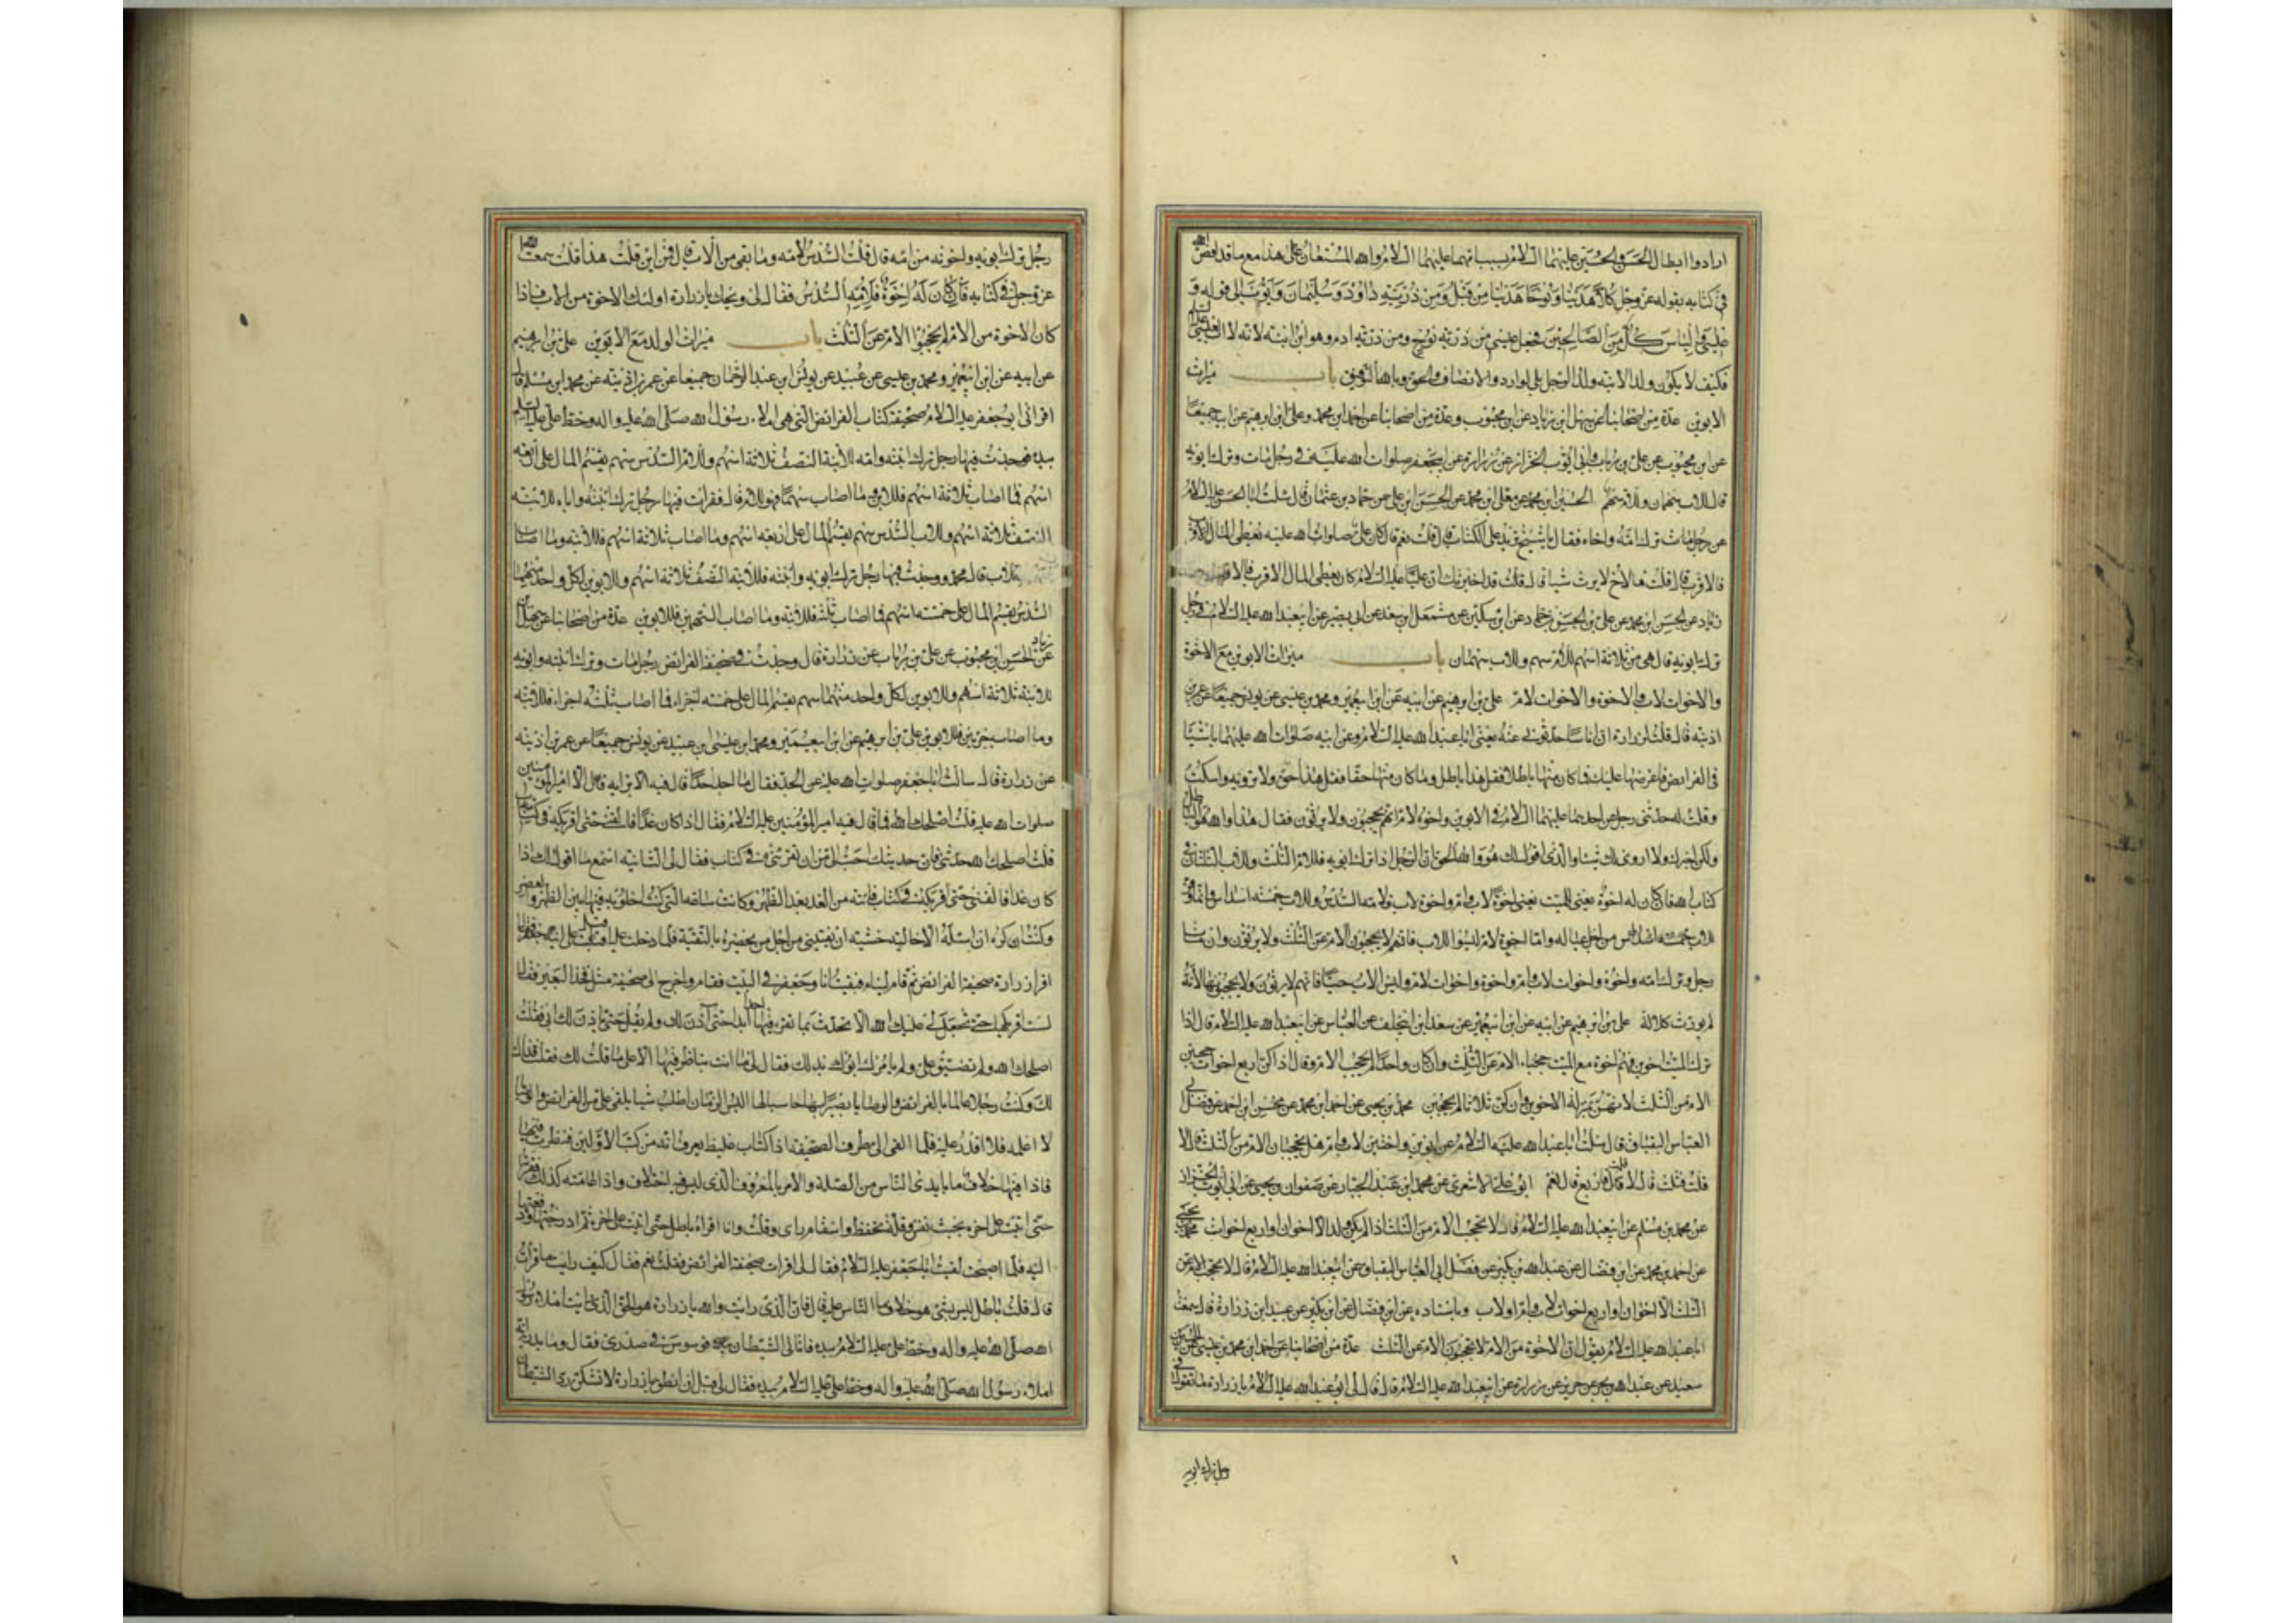 ارادوا ابطال الحسن والحسين عليهما السلام بسبب امهما عليهما السلام والله المستعان على هذا مع ما قد افصح الله
في كتابه بقوله عز وجل كلا هدينا ونوحا هدينا من قبل ومن ذريته داود وسليمان وايوب الى قوله و
عيسى والياس كل من الصالحين فجعل عيسى من ذرية نوح ومن ذرية ادم وهو ابن ابنته لانه لا اب لعيسى
فكيف لا يكون ولد الابنة ولد الرجل بلى لو ارادوا الانصاف والحق وبالله التوفيق باب ميراث
الابوين عدة من اصحابنا عن سهل ابن زياد عن ابن محبوب وعدة من اصحابنا عن احمد ابن محمد وعلى ابن ابرهيم عن ابيه جميعا
عن ابن محبوب عن على بن رياب وابى ايوب الخزاز عن زرارة عن ابى جعفر صلوات الله عليه فى رجل مات وترك ابويه
قال للاب سهمان وللام سهم الحسين ابن محمد عن معلى ابن محمد عن الحسن ابن على عن حماد بن عثمان قال سئلت ابا الحسن عليه السلام
عن رجل مات ترك امه واخاه فقال يا شيخ تريد على الكتاب قال قلت نعم قال كان على صلوات الله عليه يعطى المال الاقرب
فالاقرب قال قلت فالاخ لا يرث شيا قال قلت قد اخبرتك ان عليا عليه السلام كان يعطى المال الاقرب فالاقرب
زياد عن الحسن ابن محمد عن على بن الحسن عن ابن سكين عن مشمعل ابن سعد عن ابى بصير عن ابيعبد الله عليه السلام فى رجل
ترك ابويه قال هى من ثلاثة اسهم للام سهم وللاب سهمان باب ميراث الابوين مع الاخوة
والاخوات لاب والاخوة والاخوات لام على بن ابرهيم عن ابيه عن ابن ابيعمير ومحمد بن عيسى عن يونس جميعا عن عمر بن
اذينة قال قلت لزرارة ان اناسا حدثونى عنه يعنى ابا عبد الله عليه السلام وعن ابيه صلوات الله عليهما باشيا
فى الفرائض فاعرضها عليك فما كان منها باطلا فقل هذا باطل وما كان منها حقا فقل هذا حق ولا تروه واسكت
وقلت له حدثنى رجل عن احدهما عليهما السلام فى الابوين واخوة لام انهم يحجبون ولا يرثون فقال هذا والله هو الباطل
ولكنى اخبرك ولا اروى لك شيئا والذى اقول لك هو والله الحق ان الرجل اذا ترك ابويه فللام الثلث وللاب الثلثان فى
كتاب الله فان كان له اخوة يعنى للميت يعنى اخوة لاب وام او اخوة لاب فلامه السدس وللاب خمسة اسداس وانما وفر
للاب خمسة اسداس من اجل عياله واما اخوة لام ليسوا للاب فانهم لا يحجبون الام عن الثلث ولا يرثون وان مات
رجل وترك امه واخوة واخوات لاب وام واخوة واخوات لام وليس الاب حيا فانهم لا يرثون ولا يحجبونها لانه
لم يورث كلالة على بن ابرهيم عن ابيه عن ابن ابيعمير عن سعد ابن ابيخلف عن العباس عن ابيعبد الله عليه السلام قال اذا
ترك الميت اخوين فهم اخوة مع الميت حجبا الام عن الثلث وان كان واحدا لم يحجب الام وقال اذا كن اربع اخوات حجبن
الام من الثلث لانهن بمنزلة الاخوين وان كن ثلاثا لم يحجبن محمد بن يحيى عن احمد ابن محمد عن محسن ابن احمد عن فضل ابى
العباس البقباق قال سئلت ابا عبد الله عليه السلام عن ابوين واختين لاب وام هل يحجبان الام من الثلث قال لا
قلت فثلث قال لا قلت فاربع قال نعم ابو على الاشعرى عن محمد ابن عبد الجبار عن صفوان بن يحيى عن ابى ايوب الخزاز
عن محمد بن مسلم عن ابيعبد الله عليه السلام قال لا تحجب الام من الثلث اذا لم يكن ولد الا اخوان او اربع اخوات محمد بن يحيى
عن احمد بن محمد عن ابن فضال عن عبد الله بن بكير عن فضل ابى العباس البقباق عن ابيعبد الله عليه السلام قال لا تحجب الام عن
الثلث الا اخوان او اربع اخوات لاب وام او لاب وباسناده عن ابن فضال عن ابن بكير عن عبيد ابن زرارة قال سمعت
ابا عبد الله عليه السلام يقول ان الاخوة من الام لا يحجبون الام عن الثلث عدة من اصحابنا عن احمد ابن محمد بن عيسى عن الحسين بن
سعيد عن عبد الله بن بحر عن حريز عن زرارة عن ابيعبد الله عليه السلام قال قال لى ابو عبد الله عليه السلام يا زرارة ما تقول فى
رجل ترك ابويه
رجل ترك ابويه واخوته من امه قال قلت السدس لامه وما بقى من الاب قال فمن اين قلت هذا قلت سمعت الله
عز وجل فى كتابه فان كان له اخوة فلامه السدس فقال لى ويحك يا زرارة اولئك الاخوة من الاب فاذا
كان الاخوة من الام لم يحجبوا الام عن الثلث باب ميراث الولد مع الابوين على بن ابرهيم
عن ابيه عن ابن ابيعمير ومحمد بن عيسى عن عبيد عن يونس ابن عبد الرحمان جميعا عن عمر بن اذينة عن محمد ابن مسلم قال
اقرانى ابو جعفر عليه السلام صحيفة كتاب الفرائض التى هى املاء رسول الله صلى الله عليه واله وخط على عليه السلم
بيده فوجدت فيها رجل ترك ابنته وامه للابنة النصف ثلاثة اسهم وللام السدس سهم يقسم المال على اربعة
اسهم فما اصاب ثلاثة اسهم فللابنة وما اصاب سهما فهو للام قال فقرات فيها رجل ترك ابنته واباه للابنة
النصف ثلاثة اسهم وللاب السدس سهم يقسم المال على اربعة اسهم وما اصاب ثلاثة اسهم فللابنة وما اصاب
فللاب قال محمد ووجدت فيها رجل ترك ابويه وابنته فللابنة النصف ثلاثة اسهم وللابوين لكل واحد منهما
السدس يقسم المال على خمسة اسهم فما اصاب ثلثة فللابنة وما اصاب السهمين فللابوين عدة من اصحابنا عن سهل ابن زياد
عن الحسن ابن محبوب عن على بن رياب عن زرارة قال وجدت فى صحيفة الفرائض رجل مات وترك ابنته وابويه
للابنة ثلاثة اسهم وللابوين لكل واحد منهما سهم يقسم المال على خمسة اجزاء فما اصاب ثلثة اجزاء فللابنة
وما اصاب جزئين فللابوين على بن ابرهيم عن ابن ابيعمير ومحمد ابن عيسى ابن عبيد عن يونس جميعا عن عمر بن اذينة
عن زرارة قال سالت ابا جعفر صلوات الله عليه عن الجد فقال ما احد احدا قال فيه الا برايه قال الا امير المومنين
صلوات الله عليه قلت اصلحك الله فما قال فيه امير المؤمنين عليه السلام فقال اذا كان غدا فالقنى حتى اقريكه فى كتاب
قلت اصلحك الله حدثنى فان حديثك احب الى من ان تقرئنيه فى كتاب فقال لى الثانية اسمع ما اقول لك اذا
كان غدا فالقنى حتى اقريكه فى كتاب فاتيته من الغد بعد الظهر وكانت ساعة التى كنت اخلو به فيها بين الظهر والعصر
وكنت اكره ان اسئله الا خاليا خشية ان يفتينى من اجل من يحضره بالتقية فلما دخلت عليه اقبل على ابنه جعفر فقال
اقرا زرارة صحيفة الفرائض ثم قام لينام فبقيت انا وجعفر فى البيت فقام واخرج الى صحيفة مثل فخذ البعير فقال
لست اقريكها حتى تجعل لى عليك الله الا تحدث بما تقرء فيها احدا ابدا حتى اذن لك ولم يقل حتى ياذن لك ابى فقلت
اصلحك الله ولم تضيق على ولم يامرك ابوك بذلك فقال لى ما انت بناظر فيها الا على ما قلت لك فقلت فذاك
لك وكنت رجلا عالما بالفرائض والوصايا بصيرا بها حاسبا لها البث الزمان اطلب شيا يلقى على من الفرائض والوصايا
لا اعلمه فلا اقدر عليه فلما القى الى طرف الصحيفة اذا كتاب غليظ يعرف انه من كتب الاولين فنظرت فيها
فاذا فيها خلاف ما بايدى الناس من الصلة والامر بالمعروف الذى ليس فيه اختلاف واذا عامته كذلك فقراته
حتى اتيت على اخره بخبث نفس وقلة تحفظ واسقام راى وقلت وانا اقراه باطل حتى اتيت على اخره ثم ادرجتها ودفعتها
اليه فلما اصبحت لقيت ابا جعفر عليه السلام فقال لى اقرات صحيفة الفرائض فقلت نعم فقال كيف رايت ما قرات
قال قلت باطل ليس بشئ هو خلاف ما الناس عليه قال فان الذى رايت والله يا زرارة هو الحق الذى رايت املاء رسول
الله صلى الله عليه واله وخط على عليه السلام بيده فاتانى الشيطان فوسوس فى صدرى فقال وما يدريه انه
املاء رسول الله صلى الله عليه واله وخط على عليه السلام بيده فقال لى قبل ان انطق يا زرارة لا تشكن ود الشيطان